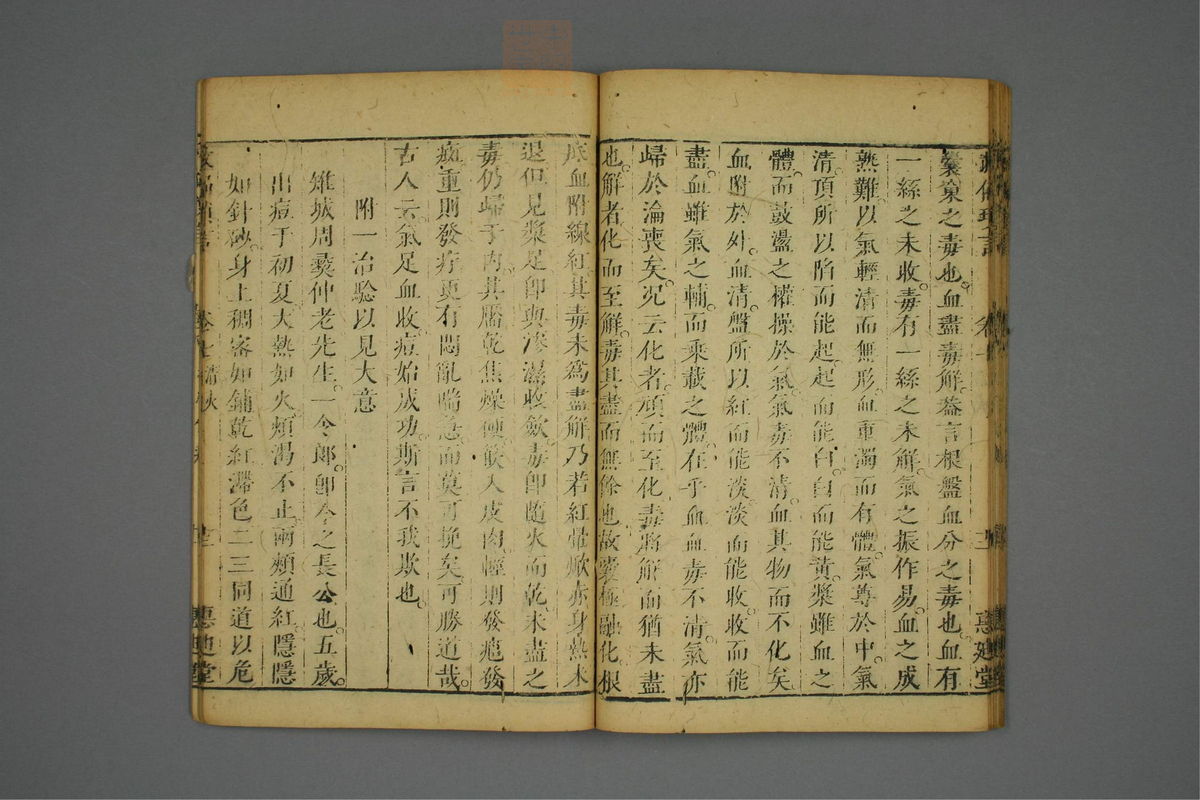 囊窠之毒也。血盡毒解蓋言根盤血分之毒也。血有
一絲之未收毒有一絲之未解。氣之振作易。血之成
熟難。以氣輕清而無形。血重濁而有體。氣尊於中。氣
清。頂所以陷而能起。起而能白。白而能黃。漿雖血之
體。而鼓盪之權操於氣。氣毒不清。血其物而不化矣。
血附於外。血清。盤所以紅而能淡。淡而能收。收而能
盡。血雖氣之輔。而乘載之體。在乎血。血毒不清。氣亦
歸於淪喪矣。况云化者。頑而至化。毒將解而猶未盡
也。解者。化而至解。毒其盡而無餘也。故囊極融化。根
底血附線紅。其毒未為盡解。乃若紅暈焮赤。身熱未
退。但見漿足。卽與滲濕收斂。毒卽隨火而乾。未盡之
毒。仍歸于內。其靨乾焦燥。便斂入皮肉。輕則發癍發
疵。重則發疔。更有悶亂喘急。而莫可挽矣。可勝道哉。
古人云。氣足血收。痘始成功。斯言不我欺也。
附一治驗以見大意
雉城周爕仲老先生。一令郎。卽今之長公也。五歲。
出痘于初夏。大熱如火。煩渴不止。兩頰通紅。隱隱
如針砂。身上稠密如鋪。乾紅滯色。二三同道以危
惠廸堂
惠廸堂